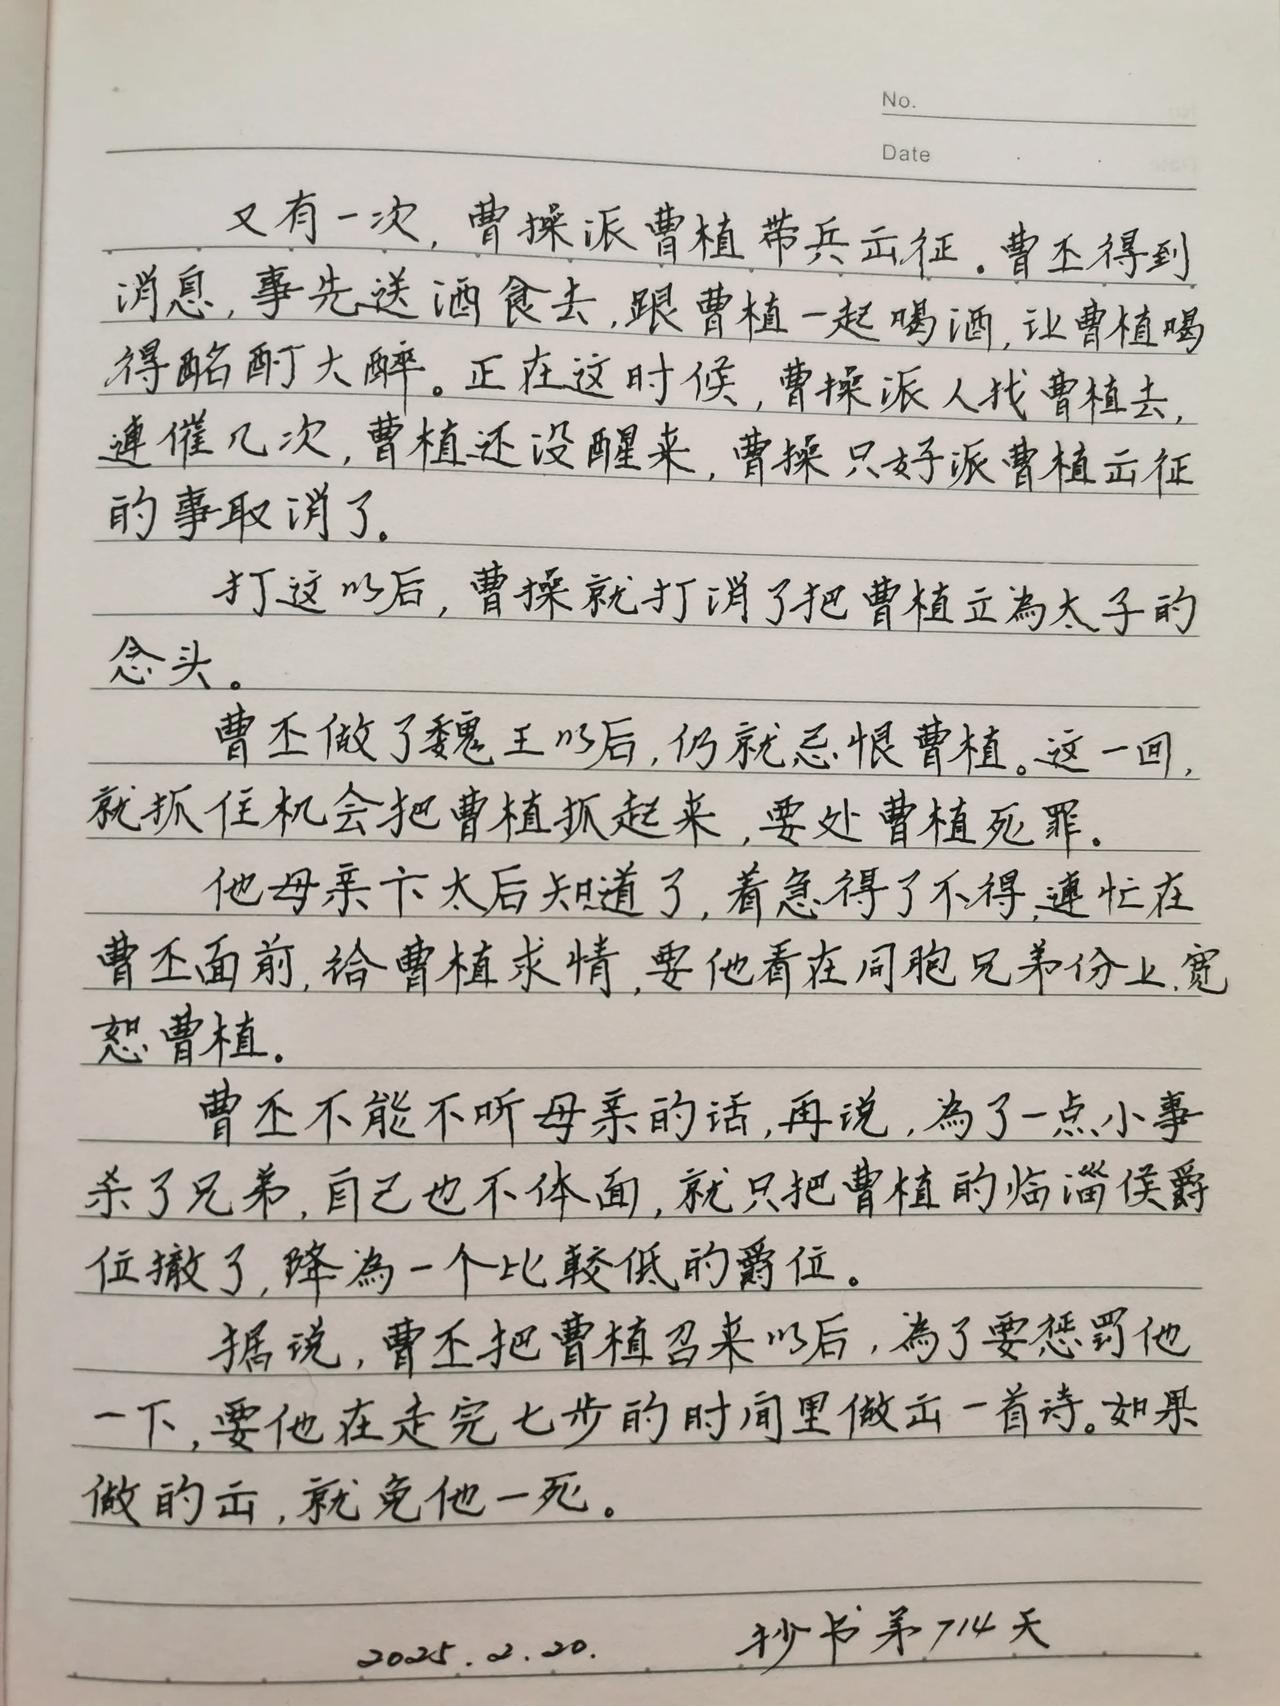 No.
Date
又有一次,曹操派曹植带兵出征.曹丕得到
消息,事先送酒食去,跟曹植一起喝酒,让曹植喝
得酩酊大醉。正在这时候,曹操派人找曹植去,
連催几次,曹植还没醒来,曹操只好派曹植出征
的事取消了。
打这以后,曹操就打消了把曹植立為太子的
念头。
曹丕做了魏王以后,仍就忌恨曹植。这一回,
就抓住机会把曹植抓起来,要处曹植死罪.
他母亲卞太后知道了,着急得了不得,連忙在
曹丕面前,给曹植求情,要他看在同胞兄弟份上,宽
恕曹植.
曹丕不能不听母亲的话,再说,為了一点小事
杀了兄弟,自己也不体面,就只把曹植的临淄侯爵
位撤了,降為一个比較低的爵位。
据说,曹丕把曹植召来以后,為了要惩罚他
一下,要他在走完七步的时间里做出一首诗。如果
做的出,就免他一死。
2025.2.20. 抄书第714天